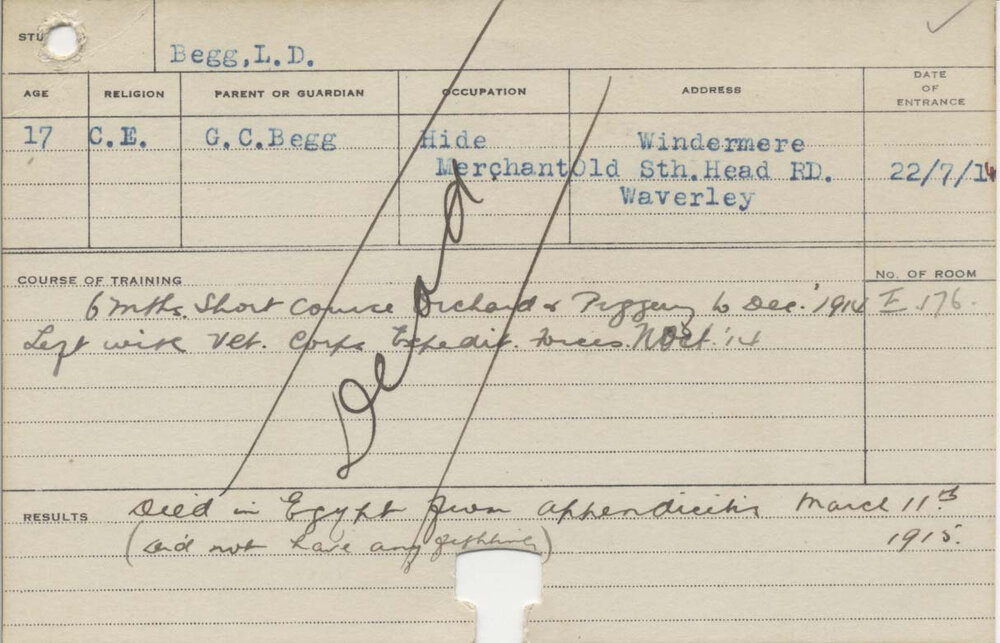 STU
Begg, L.D.
AGE RELIGION PARENT OR GUARDIAN OCCUPATION ADDRESS DATE OF ENTRANCE
17 C.E. G.C.Begg Hide Windermere
Merchant Old Sth.Head RD. 22/7/14
Waverley
Dead
COURSE OF TRAINING No. OF ROOM
6 mths. Short Course Orchard & Piggery to Dec. '1914 E 176.
Left with Vet. Corps Expedit. Forces Oct. '14
RESULTS Died in Egypt from appendicitis March 11th
(Did not have any fighting) 1915.